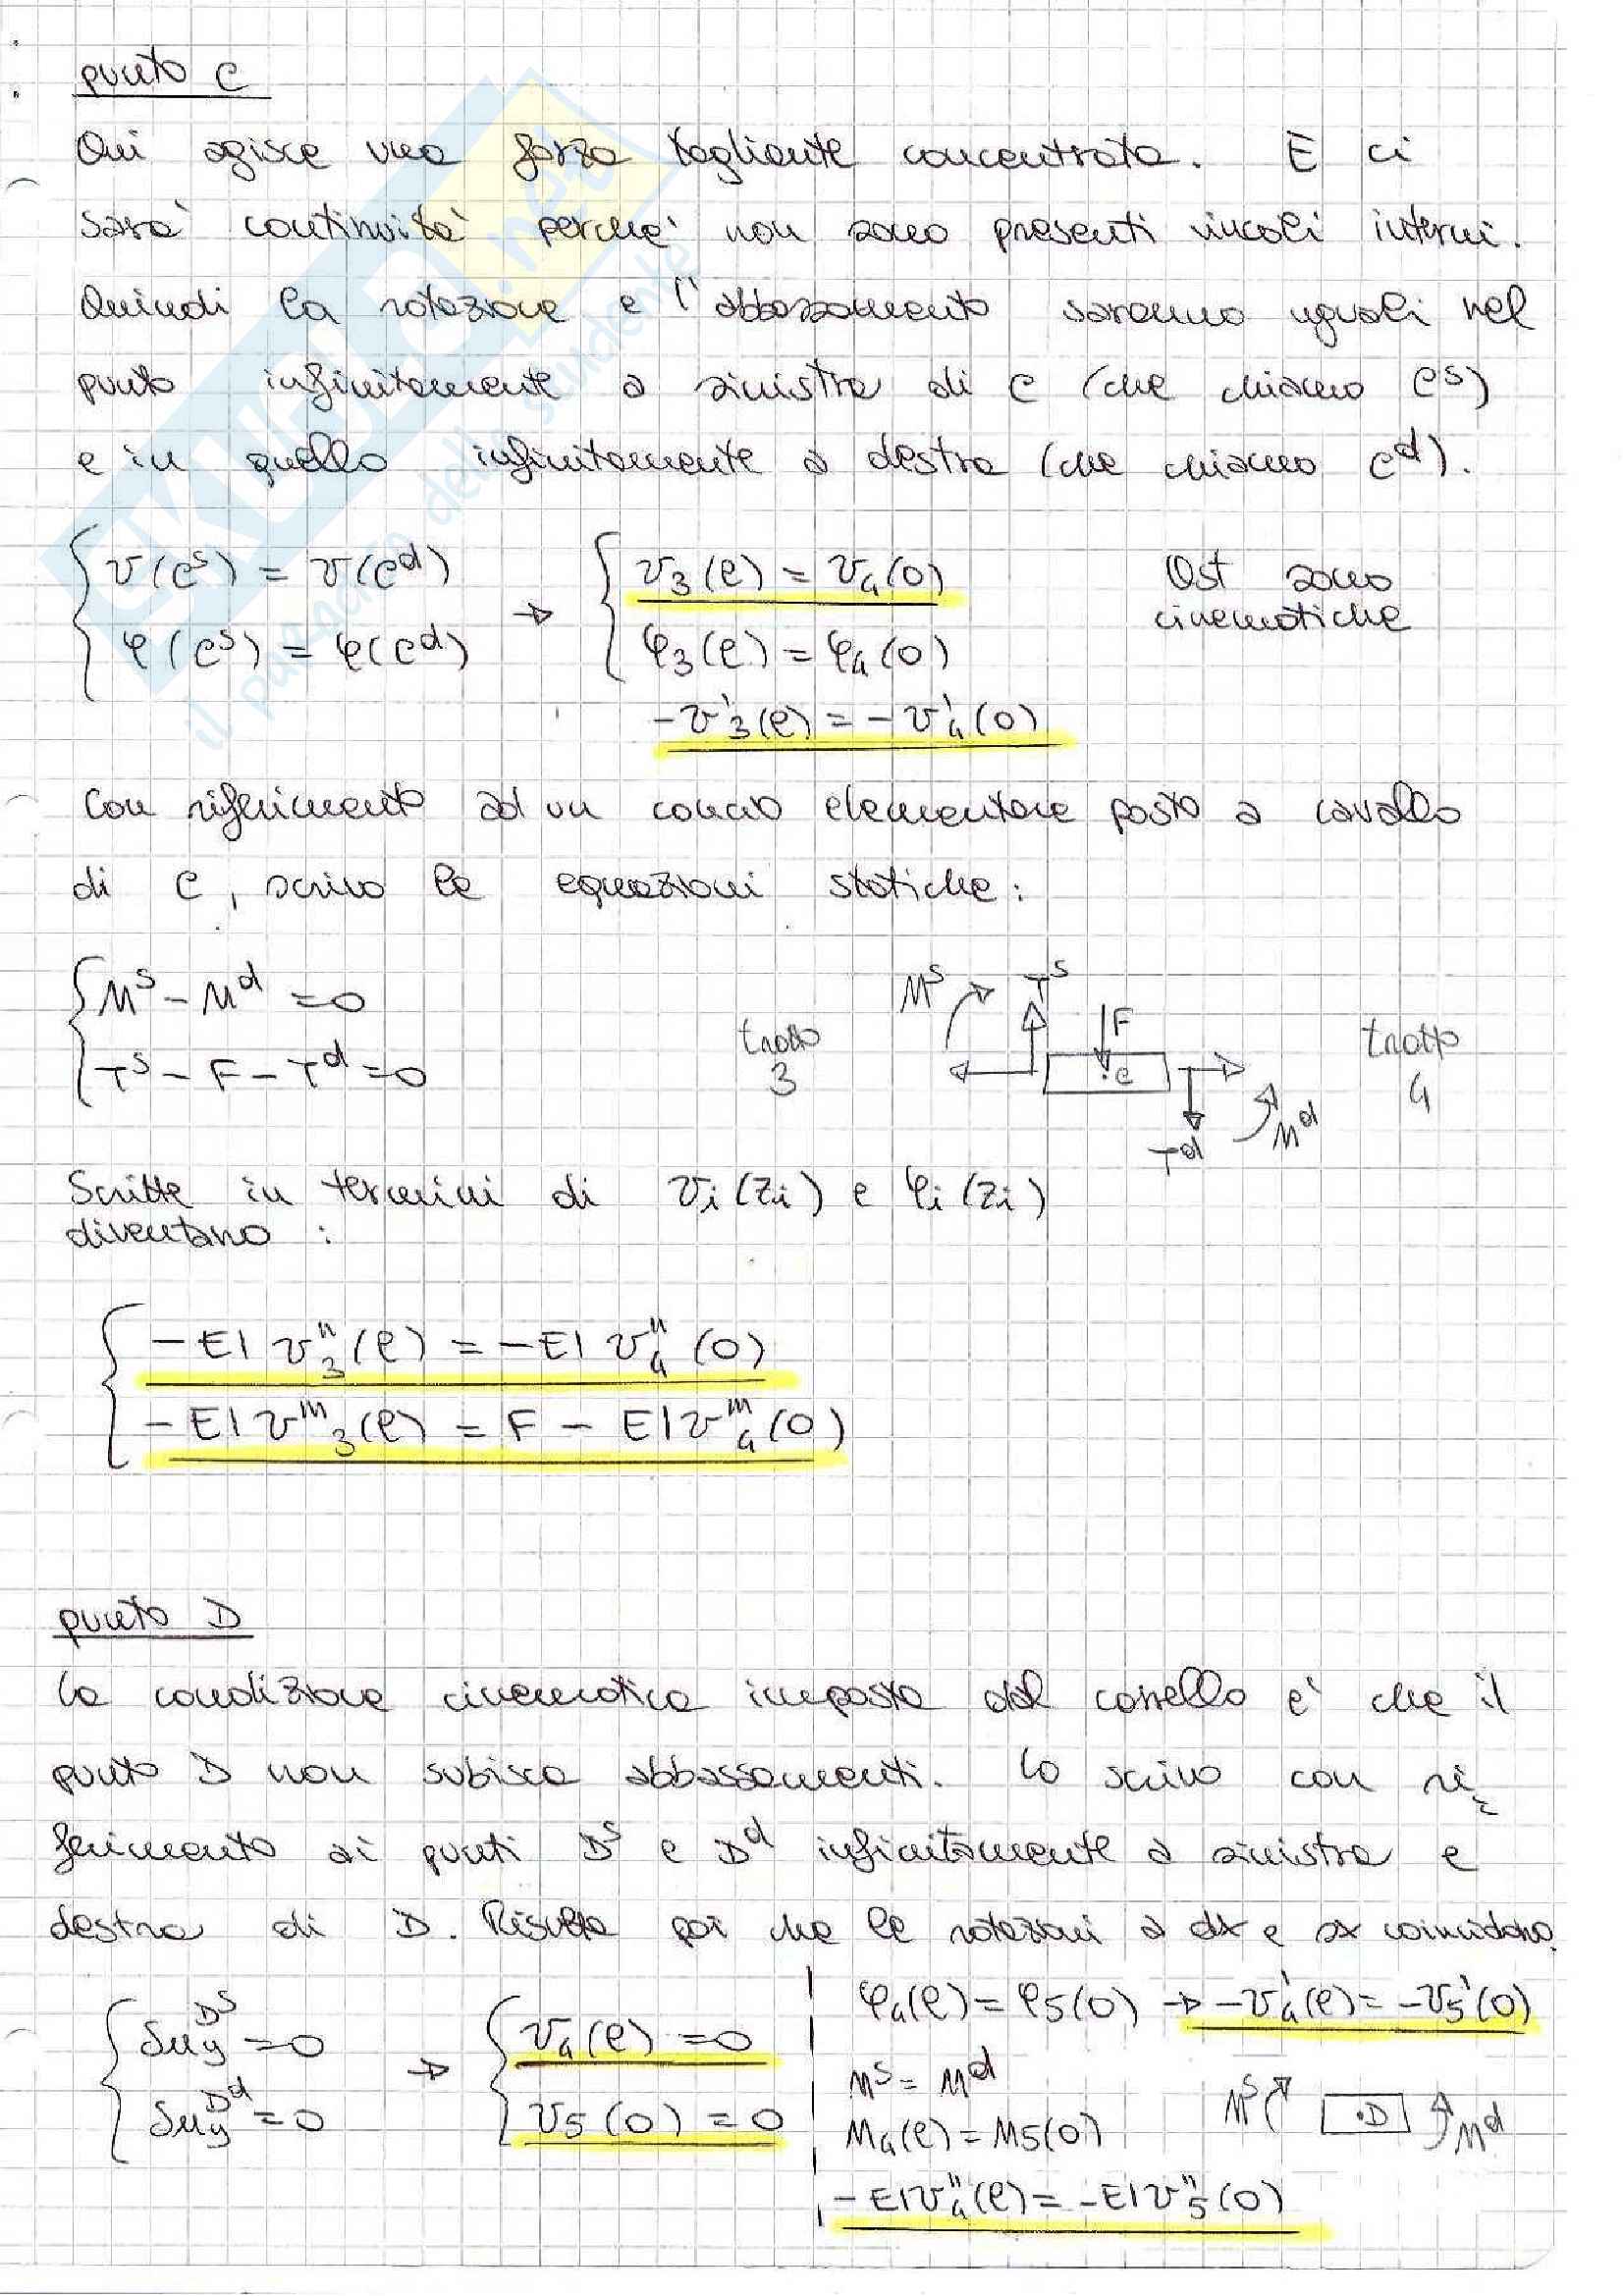 punto C
Qui agisce una forza tagliante concentrata. E ci
sarà continuità perché non sono presenti vincoli interni.
Quindi la rotazione e l'abbassamento saranno uguali nel
punto infinitamente a sinistra di C (che chiamo Cˢ)
e in quello infinitamente a destra (che chiamo Cᵈ).
v(Cˢ) = v(Cᵈ) → v₃(ℓ) = v₄(0) Qst sono
φ(Cˢ) = φ(Cᵈ) φ₃(ℓ) = φ₄(0) cinematiche
-v'₃(ℓ) = -v'₄(0)
Con riferimento ad un concio elementare posto a cavallo
di C, scrivo le equazioni statiche:
Mˢ - Mᵈ = 0
Tˢ - F - Tᵈ = 0
tratto
3
Mˢ Tˢ
F
C
Tᵈ Mᵈ
tratto
4
Scritte in termini di vᵢ(zᵢ) e φᵢ(zᵢ)
diventano :
-EI v''₃(ℓ) = -EI v''₄(0)
-EI v'''₃(ℓ) = F - EI v'''₄(0)
punto D
La condizione cinematica imposta dal carrello e' che il
punto D non subisca abbassamenti. Lo scrivo con ri=
ferimento ai punti Dˢ e Dᵈ infinitamente a sinistra e
destra di D. Risulta poi che le rotazioni a dx e sx coincidono.
δu_y^Dˢ = 0 → v₄(ℓ) = 0
δu_y^Dᵈ = 0 v₅(0) = 0
φ₄(ℓ) = φ₅(0) → -v'₄(ℓ) = -v'₅(0)
Mˢ = Mᵈ
M₄(ℓ) = M₅(0)
Mˢ .D Mᵈ
-EIv''₄(ℓ) = -EIv''₅(0)
SKUOLA.net
il paradiso dello studente